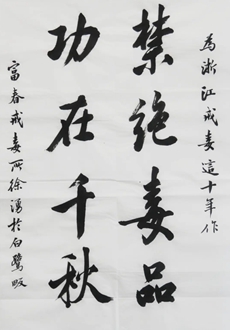 为浙江戒毒這十年作
禁绝毒品
功在千秋
富春戒毒所徐湧於白鹭畈